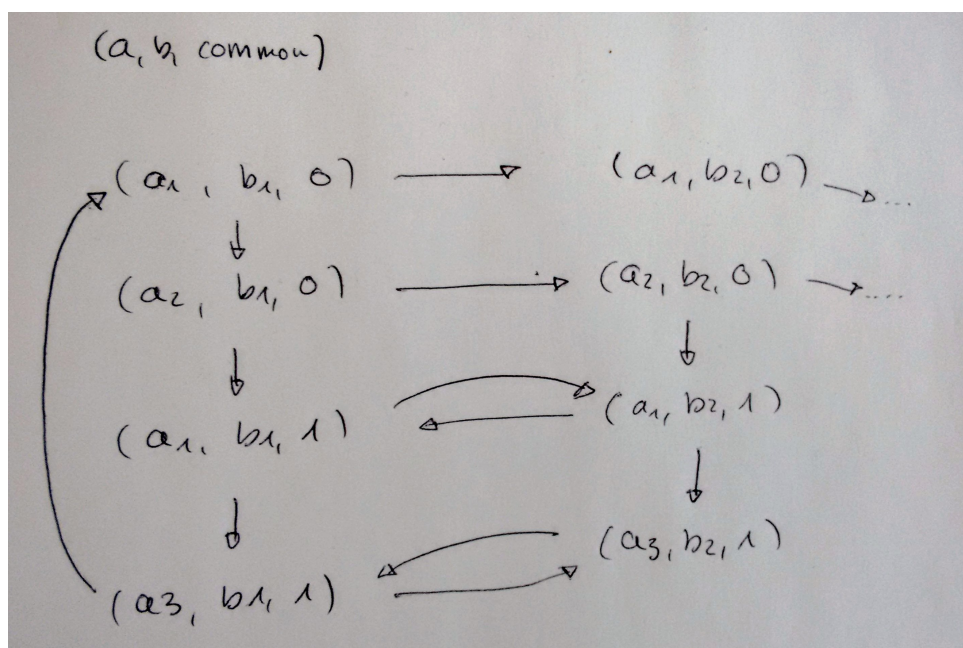 (a, b, common)
(a1, b1, 0) (a1, b2, 0) ....
(a2, b1, 0) (a2, b2, 0) ....
(a1, b1, 1) (a1, b2, 1)
(a3, b2, 1)
(a3, b1, 1)